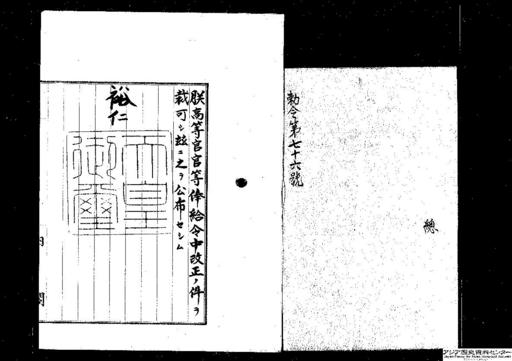 勅令第七十六號
總
朕高等官官等俸給令中改正ノ件ヲ
裁可シ玆ニ之ヲ公布セシム
裕仁
天皇
御璽
内
閣
アジア歴史資料センター